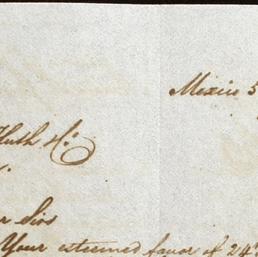 Mexico 5
Huth & Co
r Sirs
Your esteemed favor of 24th